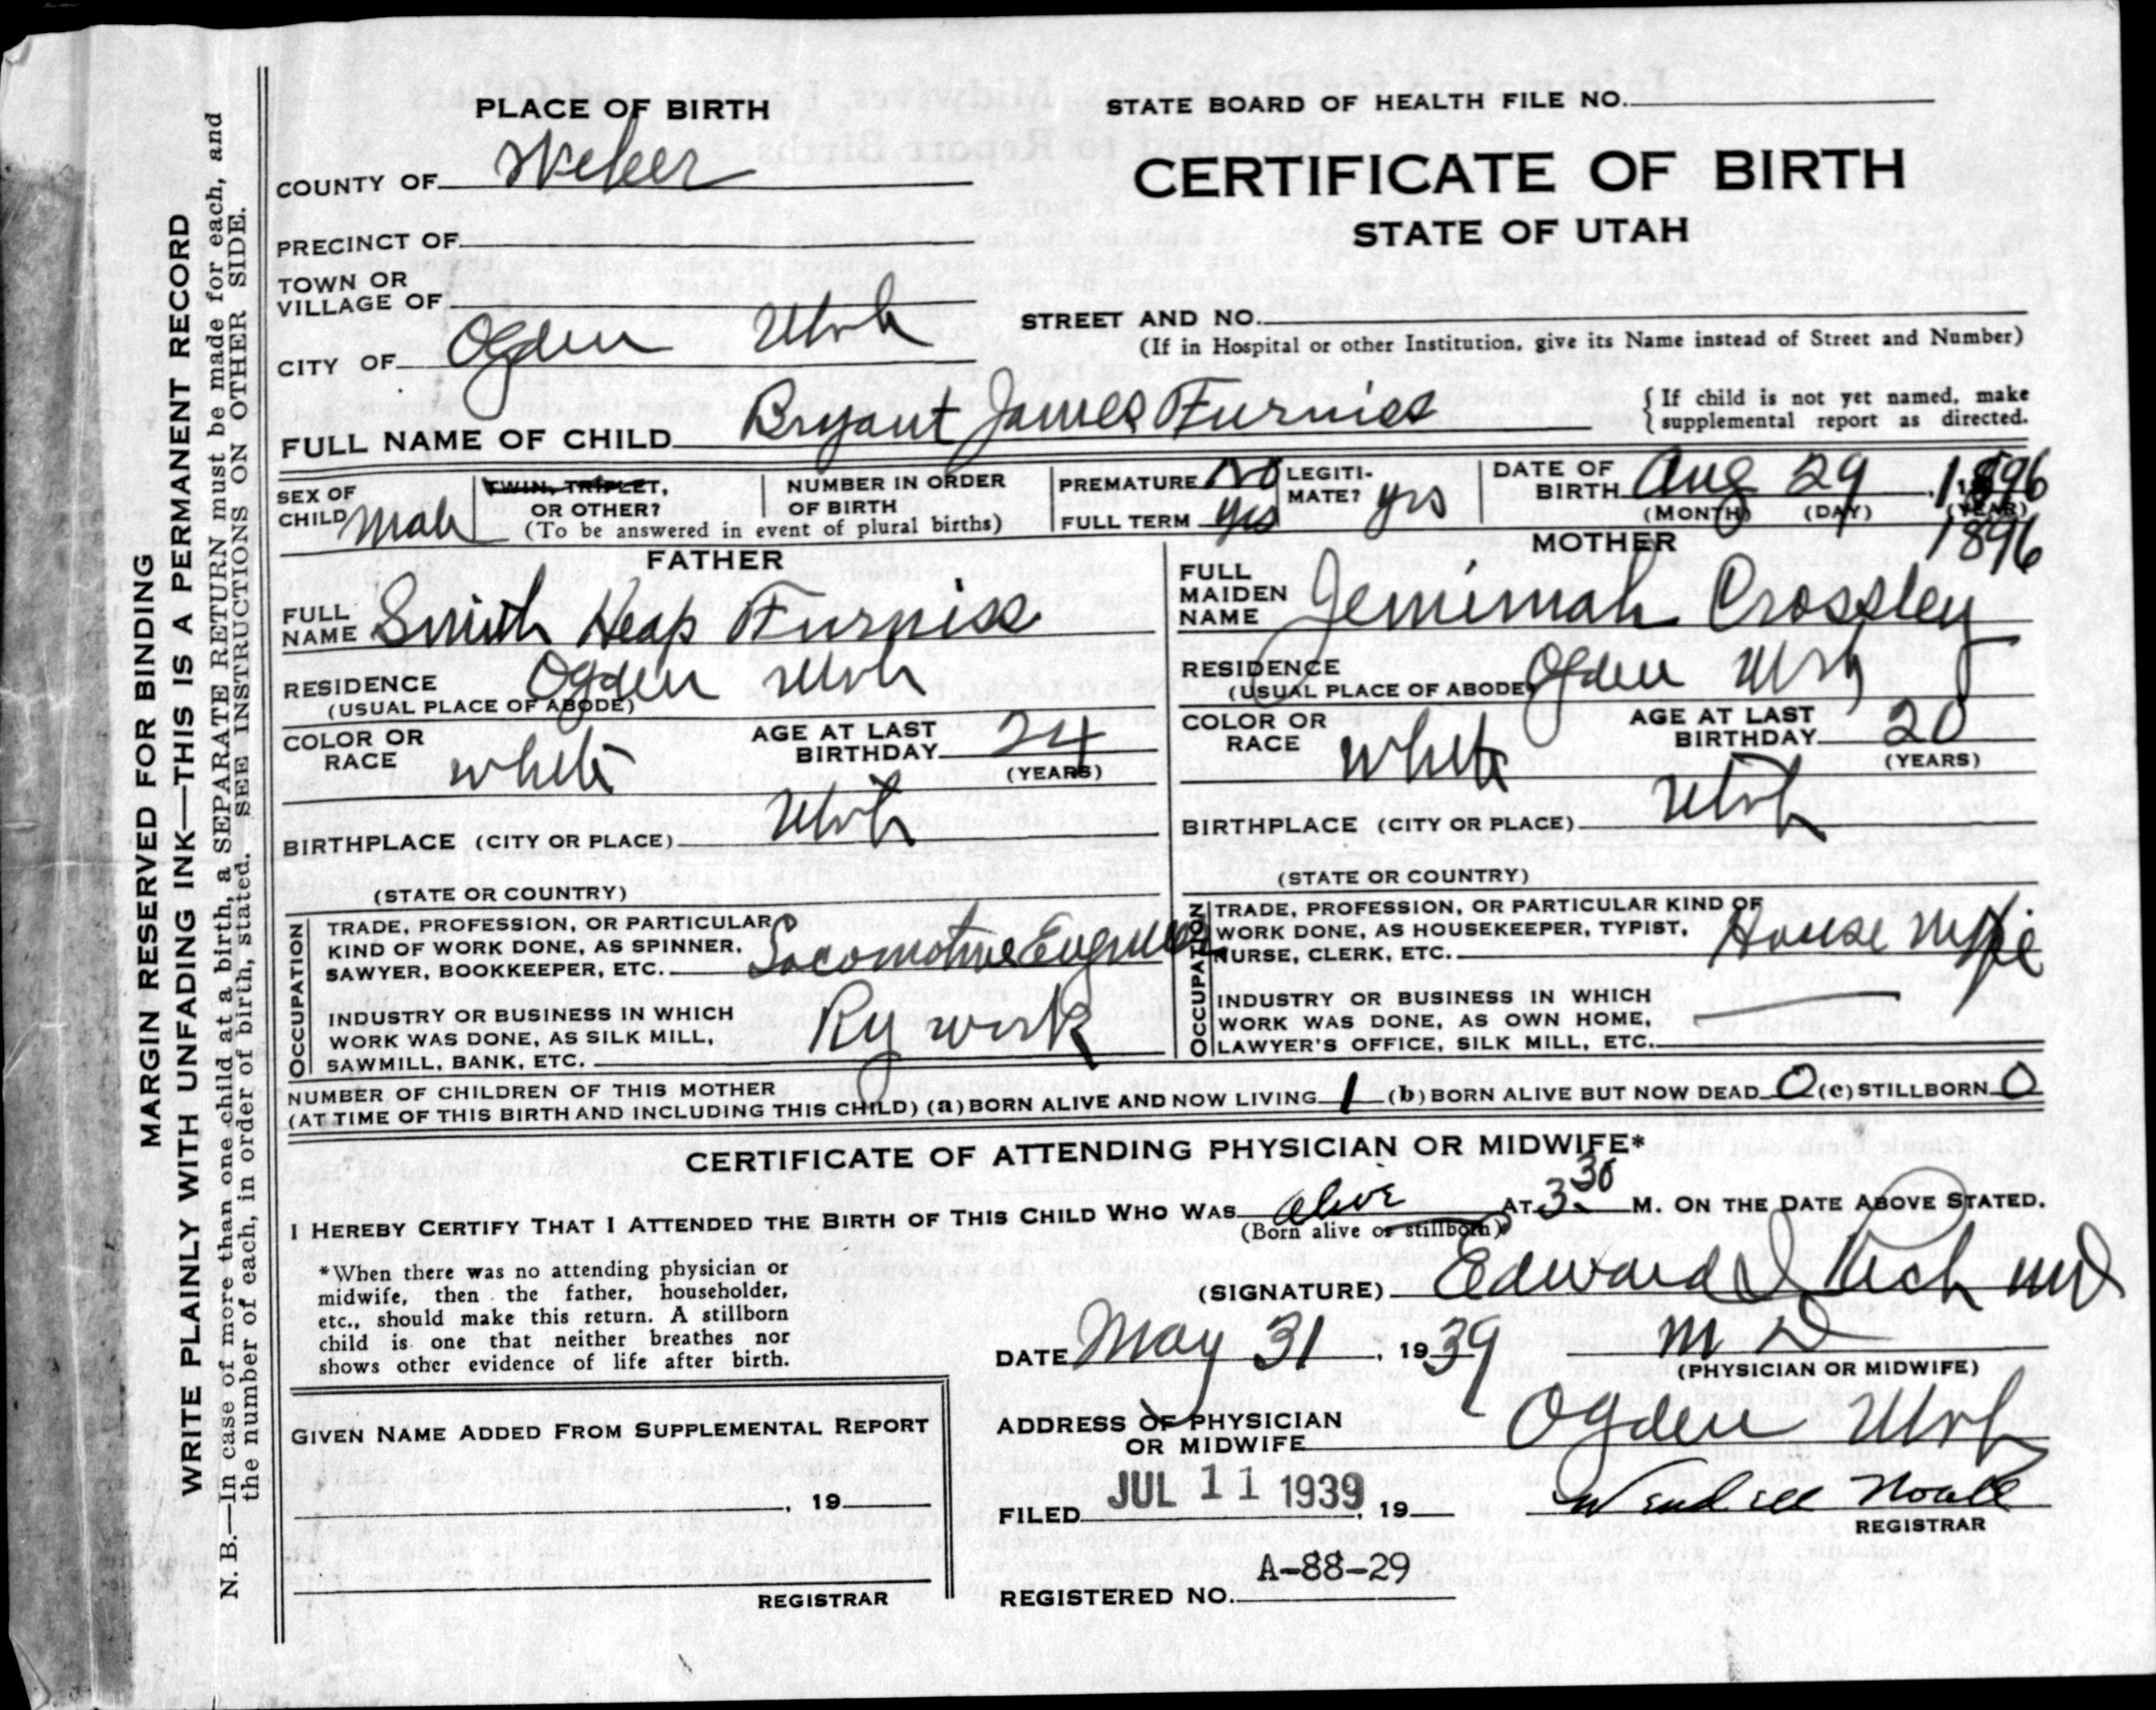 MARGIN RESERVED FOR BINDING
WRITE PLAINLY WITH UNFADING INK—THIS IS A PERMANENT RECORD
N. B.—In case of more than one child at a birth, a SEPARATE RETURN must be made for each, and
the number of each, in order of birth, stated. SEE INSTRUCTIONS ON OTHER SIDE.
PLACE OF BIRTH
STATE BOARD OF HEALTH FILE NO.
COUNTY OF Weber
CERTIFICATE OF BIRTH
STATE OF UTAH
PRECINCT OF
TOWN OR
VILLAGE OF
STREET AND NO.
(If in Hospital or other Institution, give its Name instead of Street and Number)
CITY OF Ogden Utah
FULL NAME OF CHILD Bryant James Furniss
{ If child is not yet named, make
supplemental report as directed.
SEX OF
CHILD Male
TWIN, TRIPLET,
OR OTHER?
NUMBER IN ORDER
OF BIRTH
(To be answered in event of plural births)
PREMATURE No
FULL TERM yes
LEGITI-
MATE? yes
DATE OF
BIRTH Aug 29, 1896
(MONTH) (DAY) (YEAR)
1896
FATHER
FULL
NAME Smith Heap Furniss
RESIDENCE Ogden Utah
(USUAL PLACE OF ABODE)
COLOR OR
RACE white
AGE AT LAST
BIRTHDAY 24
(YEARS)
BIRTHPLACE (CITY OR PLACE) Utah
(STATE OR COUNTRY)
OCCUPATION
TRADE, PROFESSION, OR PARTICULAR
KIND OF WORK DONE, AS SPINNER,
SAWYER, BOOKKEEPER, ETC. Locomotive Engineer
INDUSTRY OR BUSINESS IN WHICH
WORK WAS DONE, AS SILK MILL,
SAWMILL, BANK, ETC. Ry work
MOTHER
FULL
MAIDEN
NAME Jemimah Crossley
RESIDENCE Ogden Utah
(USUAL PLACE OF ABODE)
COLOR OR
RACE White
AGE AT LAST
BIRTHDAY 20
(YEARS)
BIRTHPLACE (CITY OR PLACE) Utah
(STATE OR COUNTRY)
OCCUPATION
TRADE, PROFESSION, OR PARTICULAR KIND OF
WORK DONE, AS HOUSEKEEPER, TYPIST,
NURSE, CLERK, ETC. House Wife
INDUSTRY OR BUSINESS IN WHICH
WORK WAS DONE, AS OWN HOME,
LAWYER'S OFFICE, SILK MILL, ETC.
NUMBER OF CHILDREN OF THIS MOTHER
(AT TIME OF THIS BIRTH AND INCLUDING THIS CHILD) (a) BORN ALIVE AND NOW LIVING 1 (b) BORN ALIVE BUT NOW DEAD 0 (c) STILLBORN 0
CERTIFICATE OF ATTENDING PHYSICIAN OR MIDWIFE*
I HEREBY CERTIFY THAT I ATTENDED THE BIRTH OF THIS CHILD WHO WAS alive AT 3:30 M. ON THE DATE ABOVE STATED.
(Born alive or stillborn)
*When there was no attending physician or
midwife, then the father, householder,
etc., should make this return. A stillborn
child is one that neither breathes nor
shows other evidence of life after birth.
(SIGNATURE) Edward I Rich MD
DATE May 31, 1939
M D
(PHYSICIAN OR MIDWIFE)
ADDRESS OF PHYSICIAN
OR MIDWIFE Ogden Utah
GIVEN NAME ADDED FROM SUPPLEMENTAL REPORT
, 19
REGISTRAR
FILED JUL 11 1939, 19
Wendell Noall
REGISTRAR
A-88-29
REGISTERED NO.